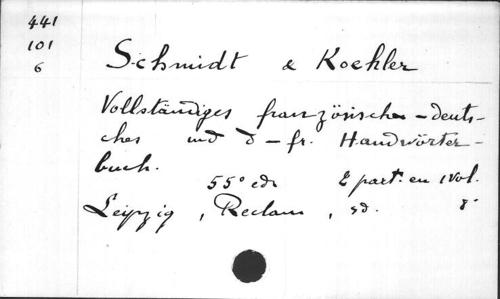 441
101
6
Schmidt & Koehler
Vollständiges französisches-deuts-
ches und d-fr. Handwörter-
buch.
55° ed. 2 part. en 1 vol.
Leipzig, Reclam, sd. 8°